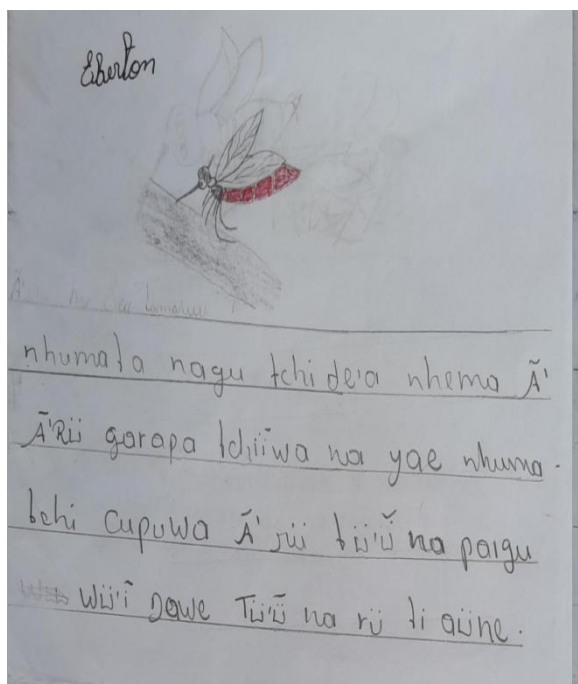 Eberton
nhumata nagu tchi de'a nhema Ã'
Ã'Rü garapa tchiïwa na yae nhuma.
tchi cupuwa Ã' rüi tüü'ü̃ na paigu
wüi'ĩ Dawe Tüü'ü̃ na rü ti aüne.